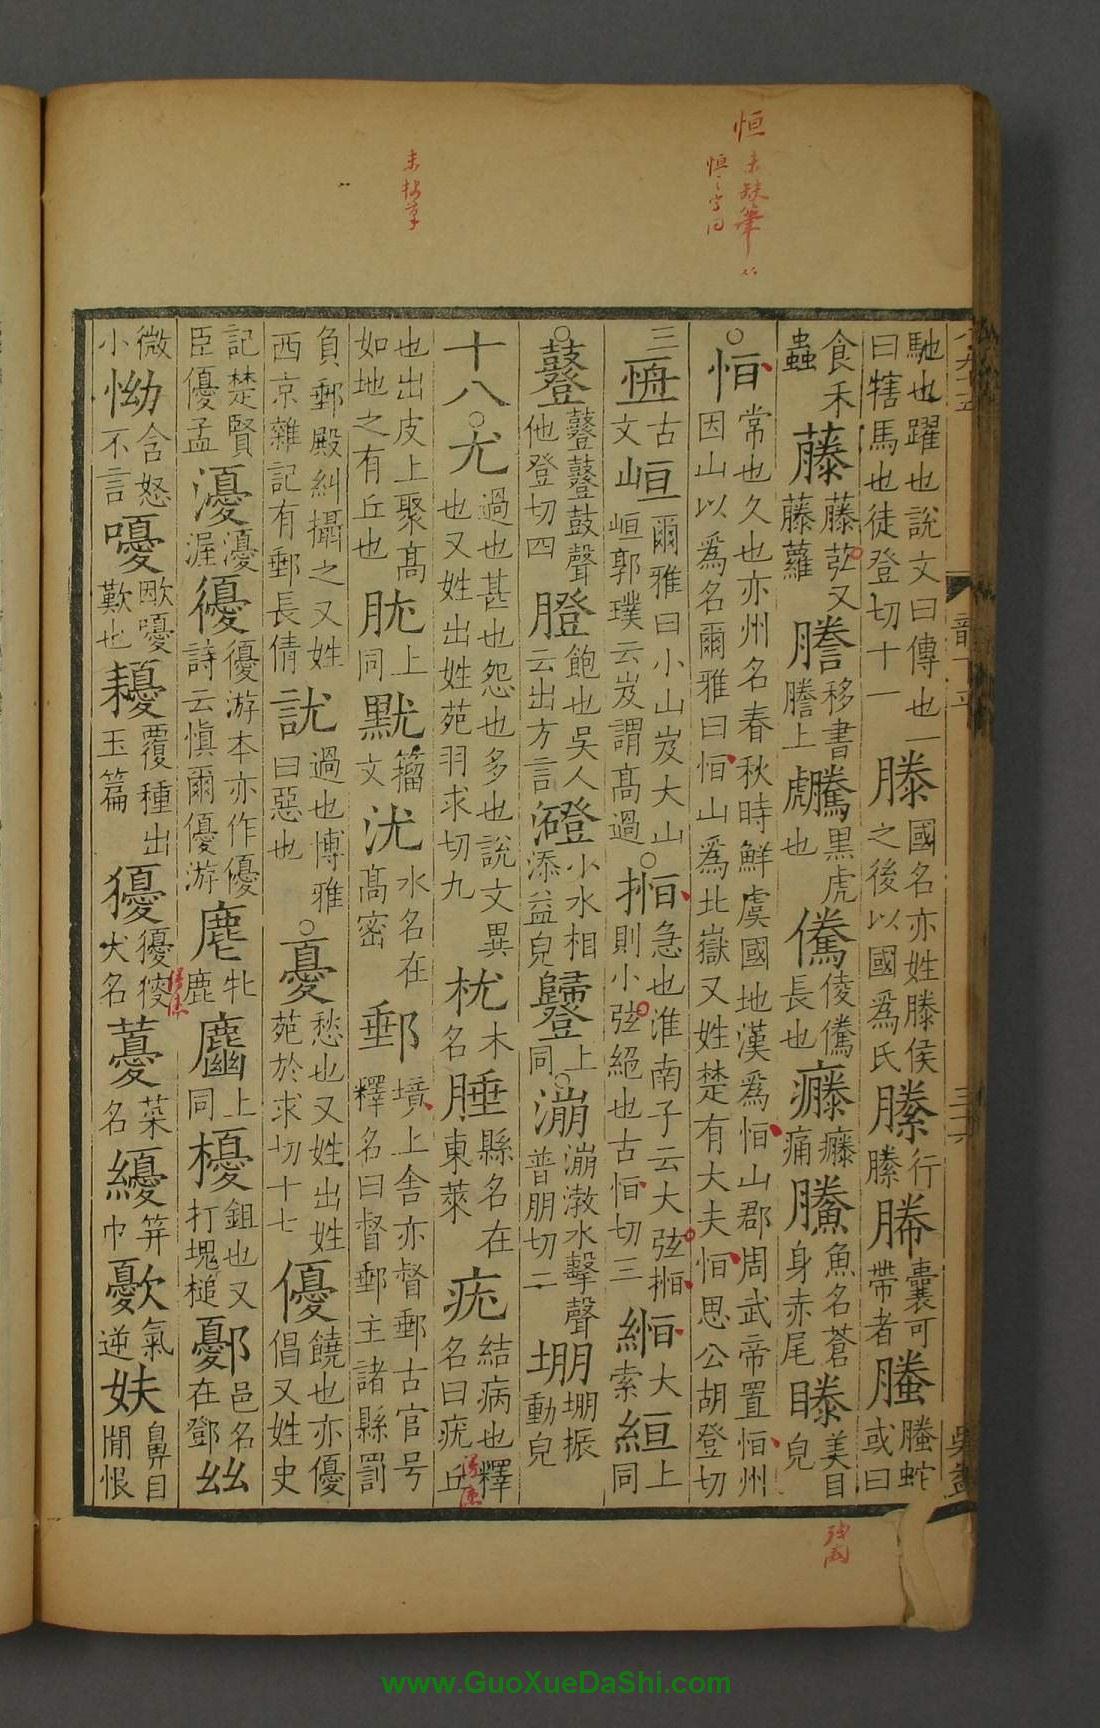 馳也躍也說文曰傳也一曰犗馬也徒登切十一 滕 國名亦姓滕侯之後以國爲氏 縢 行縢 幐 囊可帶者 螣 螣蛇或曰
食禾蟲 藤 藤苰又藤蘿 謄 移書謄上 䲢 黑虎也 儯 倰儯長也 癳 痛 魚名蒼身赤尾 美目皃
○恒 常也久也亦州名春秋時鮮虞國地漢爲恒山郡周武帝置恒州因山以爲名爾雅曰恒山爲北嶽又姓楚有大夫恒思公胡登切
三 古文 峘 爾雅曰小山岌大山峘郭璞云岌謂高過 ○搄 急也淮南子云大弦搄則小弦絕也古恒切三 緪 大索 絙 上同
○鼟 鼟鼟鼓聲他登切四 膯 飽也吳人云出方言 小水相添益皃 上同 ○漰 漰渤水擊聲普朋切二 堋 堋振動皃
十八○尤 過也甚也怨也多也說文異也又姓出姓苑羽求切九 木名 腄 縣名在東萊 疣 結病也釋名曰疣丘
也出皮上聚高如地之有丘也 肬 上同 黕 籀文 沋 水名在高密 郵 境上舍亦督郵古官号釋名曰督郵主諸縣罰
負郵殿糾攝之又姓西京雜記有郵長倩 訧 過也博雅曰惡也 ○憂 愁也又姓出姓苑於求切十七 優 饒也亦優倡又姓史
記楚賢臣優孟 瀀 瀀渥 優游本亦作優詩云愼爾優游 麀 牝鹿 上同 櫌 鉏也又打塊槌 鄾 邑名在鄧 𢆶
微小 怮 含怒不言 嚘 歐嚘歎也 耰 覆種出玉篇 㺀 犬名 菜名 纋 笄巾 㱊 氣逆 妋 鼻目閒恨
恒未缺筆
恒字同
www.GuoXueDaShi.com